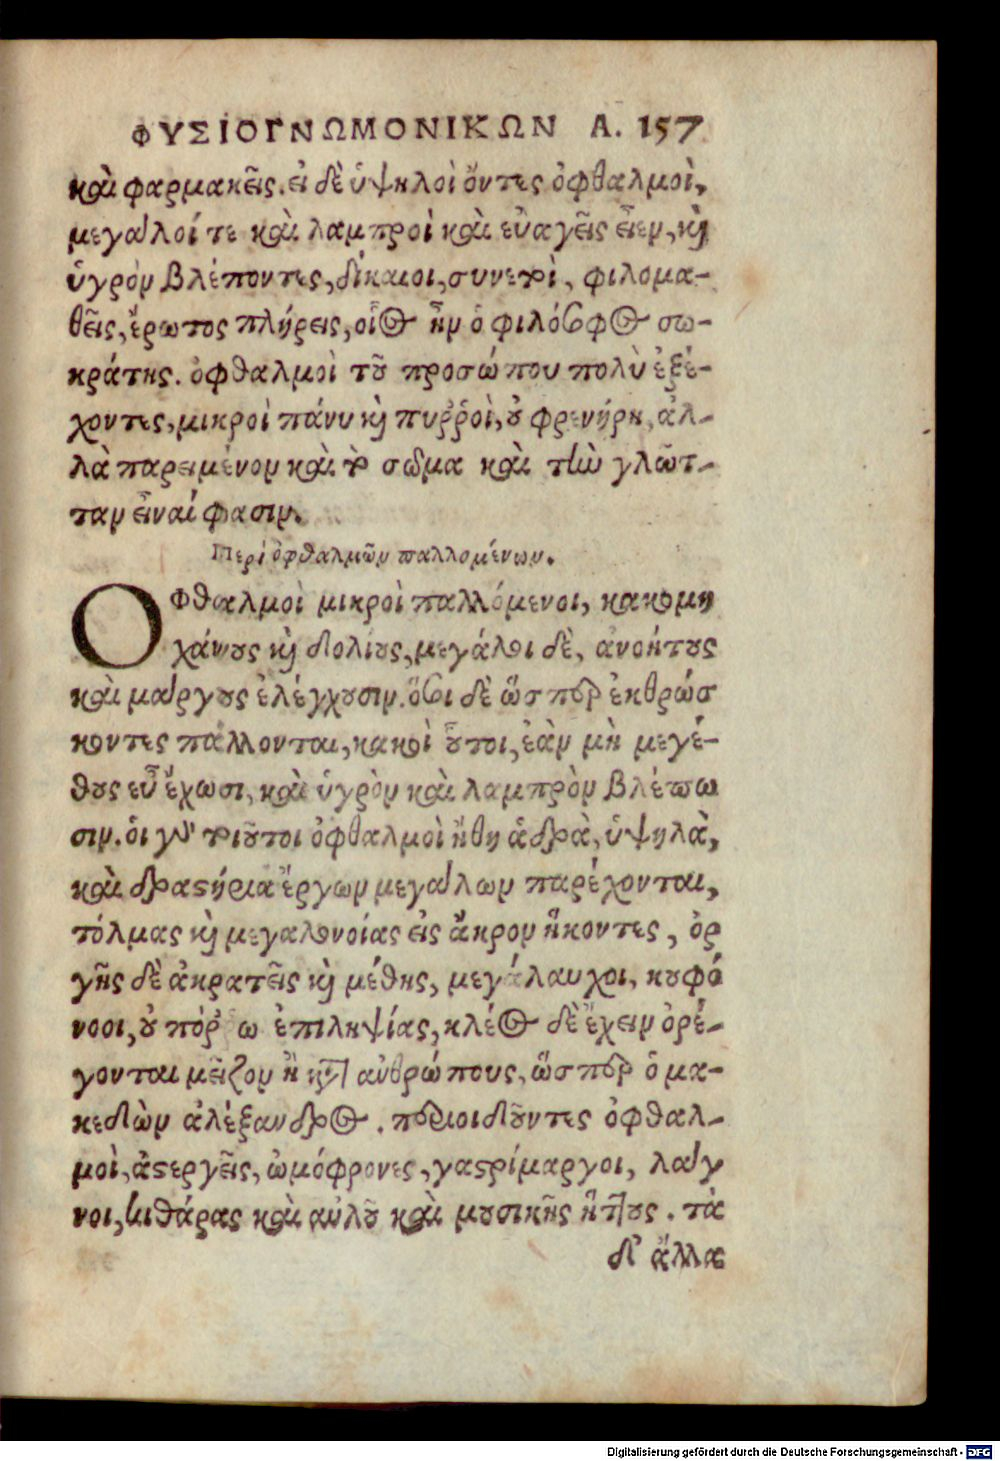 ΦΥΣΙΟΓΝΩΜΟΝΙΚΩΝ Α. 157
καὶ φαρμακεῖς. εἰ δὲ ὑψηλοὶ ὄντες ὀφθαλμοὶ,
μεγάλοί τε καὶ λαμπροὶ καὶ εὐαγεῖς εἶεν, καὶ
ὑγρὸν βλέποντες, δίκαιοι, συνετοὶ, φιλομα-
θεῖς, ἔρωτος πλήρεις, οἷος ἦν ὁ φιλόσοφος σω-
κράτης. ὀφθαλμοὶ τοῦ προσώπου πολὺ ἐξέ-
χοντες, μικροὶ πάνυ καὶ πυῤῥοὶ, οὐ φρενήρη, ἀλ-
λὰ παρειμένον καὶ τὸ σῶμα καὶ τὴν γλῶτ-
ταν εἶναί φασιν.
Περὶ ὀφθαλμῶν παλλομένων.
Οφθαλμοὶ μικροὶ παλλόμενοι, κακομη
χάνους καὶ δολίους, μεγάλοι δὲ, ἀνοήτους
καὶ μάργους ἐλέγχουσιν. ὅσοι δὲ ὥσπερ ἐκθρώσ
κοντες πάλλονται, κακοὶ οὗτοι, ἐὰν μὴ μεγέ-
θους εὖ ἔχωσι, καὶ ὑγρὸν καὶ λαμπρὸν βλέπω
σιν. οἱ γὰρ τοιοῦτοι ὀφθαλμοὶ ἤθη ἁδρὰ, ὑψηλὰ,
καὶ δραστήρια ἔργων μεγάλων παρέχονται,
τόλμας καὶ μεγαλονοίας εἰς ἄκρον ἥκοντες, ὀρ
γῆς δὲ ἀκρατεῖς καὶ μέθης, μεγάλαυχοι, κουφό
νοοι, οὐ πόῤῥω ἐπιληψίας, κλέος δὲ ἔχειν ὀρέ-
γονται μεῖζον ἢ κατ' ἀνθρώπους, ὥσπερ ὁ μα-
κεδὼν ἀλέξανδρος. περιοιδοῦντες ὀφθαλ-
μοὶ, ἀστεργεῖς, ὠμόφρονες, γαστρίμαργοι, λάγ
νοι, κιθάρας καὶ αὐλοῦ καὶ μουσικῆς ἥττους. τὰ
δ' ἄλλα
Digitalisierung gefördert durch die Deutsche Forschungsgemeinschaft - DFG